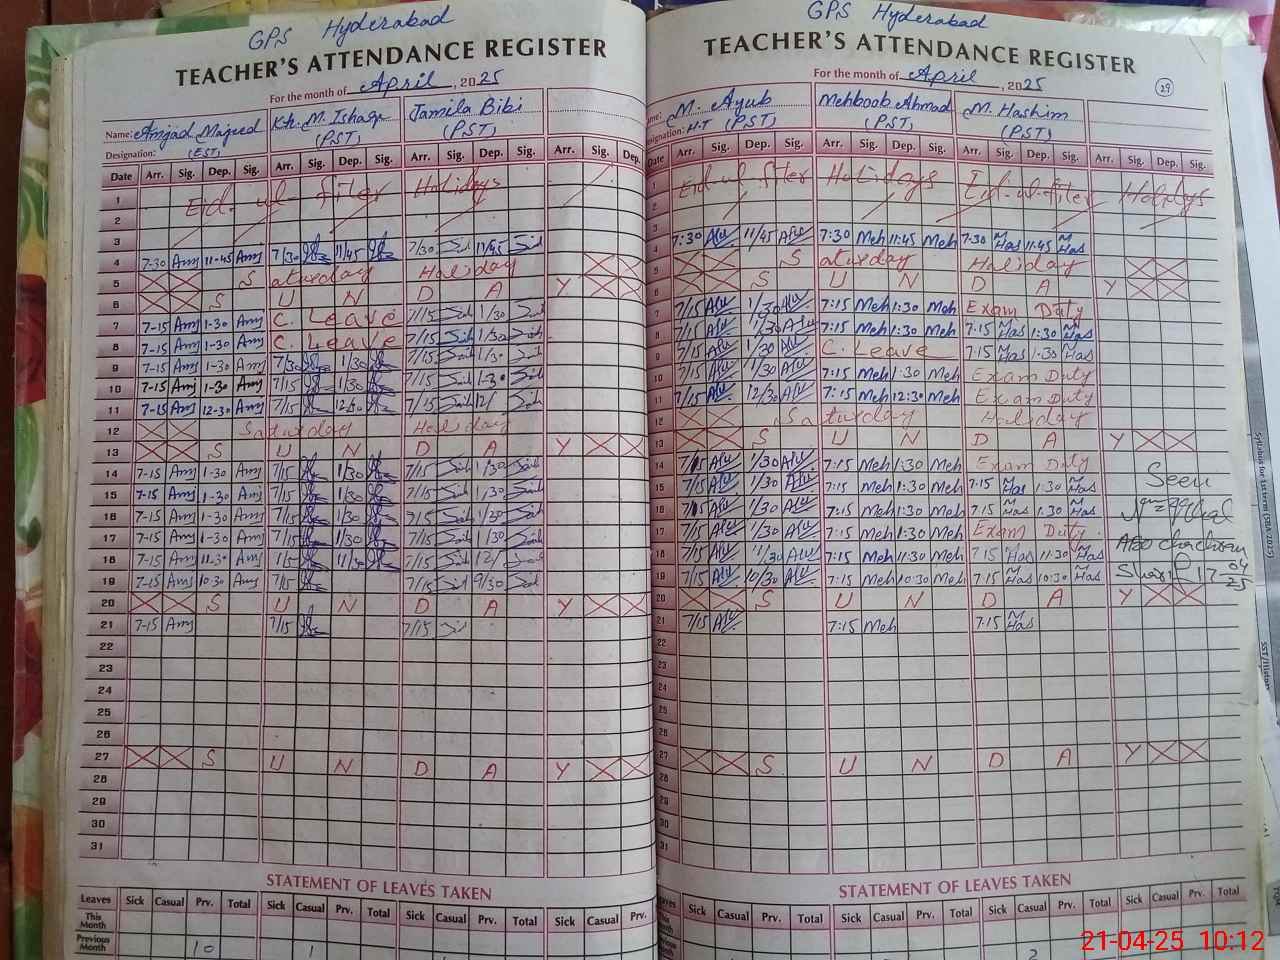 GPS Hyderabad
TEACHER'S ATTENDANCE REGISTER
For the month of April, 2025
Name: Amjad Majeed Kh. M. Ishaq Jamila Bibi
Designation: (EST) (PST) (PST)
Date Arr. Sig. Dep. Sig. Arr. Sig. Dep. Sig. Arr. Sig. Dep. Sig. Arr. Sig. Dep.
1 Eid-ul-fiter Holidays
2
3
4 7-30 Amj 11-45 Amj 7/30 11/45 7/30 11/45
5 Saturday Holiday
6 S U N D A Y
7 7-15 Amj 1-30 Amj C. Leave 7/15 1/30
8 7-15 Amj 1-30 Amj C. Leave 7/15 1/30
9 7-15 Amj 1-30 Amj 7/30 1/30 7/15 1/30
10 7-15 Amj 1-30 Amj 7/15 1/30 7/15 1-30
11 7-15 Amj 12-30 Amj 7/15 12/30 7/15 12/
12 Saturday Holiday
13 S U N D A Y
14 7-15 Amj 1-30 Amj 7/15 1/30 7/15 1/30
15 7-15 Amj 1-30 Amj 7/15 1/30 7/15 1/30
16 7-15 Amj 1-30 Amj 7/15 1/30 7/15 1/30
17 7-15 Amj 1-30 Amj 7/15 1/30 7/15 1/30
18 7-15 Amj 11-30 Amj 7/15 11/30 7/15 12/
19 7-15 Amj 10-30 Amj 7/15 7/15 9/30
20 S U N D A Y
21 7-15 Amj 7/15 7/15
22
23
24
25
26
27 S U N D A Y
28
29
30
31
STATEMENT OF LEAVES TAKEN
Leaves Sick Casual Prv. Total Sick Casual Prv. Total Sick Casual Prv. Total Sick Casual Prv.
This Month
Previous Month 10 1
GPS Hyderabad
TEACHER'S ATTENDANCE REGISTER
For the month of April, 2025
29
M. Ayub Mehboob Ahmad M. Hashim
Designation: H.T (PST) (PST) (PST)
Date Arr. Sig. Dep. Sig. Arr. Sig. Dep. Sig. Arr. Sig. Dep. Sig. Arr. Sig. Dep. Sig.
1 Eid ul fiter Holidays Eid-ul-fiter Holidays
2
3
4 7:30 11/45 7:30 Meh 11:45 Meh 7-30 M Has 11-45 M Has
5 Saturday Holiday
6 S U N D A Y
7 7/15 1/30 7:15 Meh 1:30 Meh Exam Duty
8 7/15 1/30 7:15 Meh 1:30 Meh 7-15 M Has 1-30 M Has
9 7/15 1/30 C. Leave 7-15 M Has 1-30 M Has
10 7/15 1/30 7:15 Meh 1:30 Meh Exam Duty
11 7/15 12/30 7:15 Meh 12:30 Meh Exam Duty
12 Saturday Holiday
13 S U N D A Y
14 7/15 1/30 7:15 Meh 1:30 Meh Exam Duty
15 7/15 1/30 7:15 Meh 1:30 Meh 7-15 M Has 1-30 M Has
16 7/15 1/30 7:15 Meh 1:30 Meh 7-15 M Has 1-30 M Has
17 7/15 1/30 7:15 Meh 1:30 Meh Exam Duty
18 7/15 11/30 7:15 Meh 11:30 Meh 7-15 M Has 11-30 M Has
19 7/15 10/30 7:15 Meh 10:30 Meh 7-15 M Has 10-30 M Has
20 S U N D A Y
21 7/15 7:15 Meh 7-15 M Has
22
23
24
25
26
27 S U N D A Y
28
29
30
31
Seen
AEO
17-04-25
STATEMENT OF LEAVES TAKEN
Leaves Sick Casual Prv. Total Sick Casual Prv. Total Sick Casual Prv. Total Sick Casual Prv. Total
This Month
Previous Month 2
Syllabus for 1st term (SBA 2025)
21-04-25 10:12